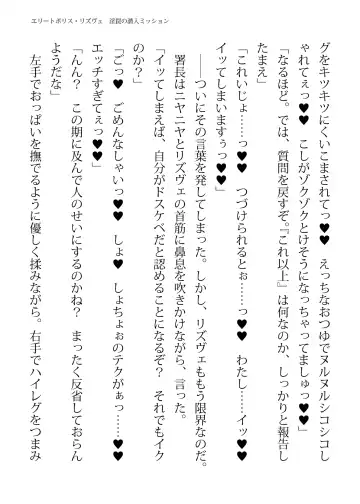 エリートポリス・リズヴェ　淫罠の潜入ミッション
グをキツキツにくいこまされてっ♥　えっちなおつゆでヌルヌルシコシコし
ゃれてぇっ♥　こしがゾクゾクとけそうになっちゃってましゅっ♥♥
「なるほど。では、質問を戻すぞ。『これ以上』は何なのか、しっかりと報告し
たまえ」
「これいじょ……っ♥　つづけられるとぉ……っ♥　わたし……イッ♥
イッてしまいますぅっ♥♥
――ついにその言葉を発してしまった。しかし、リズヴェももう限界なのだ。
署長はニヤニヤとリズヴェの首筋に鼻息を吹きかけながら、言った。
「イッてしまえば、自分がドスケベだと認めることになるぞ？　それでもイク
のか？」
「ごっ♥　ごめんなしゃいっ♥♥　しょ♥　しょちょぉのテクがぁっ……♥
エッチすぎてぇっ♥♥
「んん？　この期に及んで人のせいにするのかね？　まったく反省しておらん
ようだな」
左手でおっぱいを撫でるように優しく揉みながら。右手でハイレグをつまみ